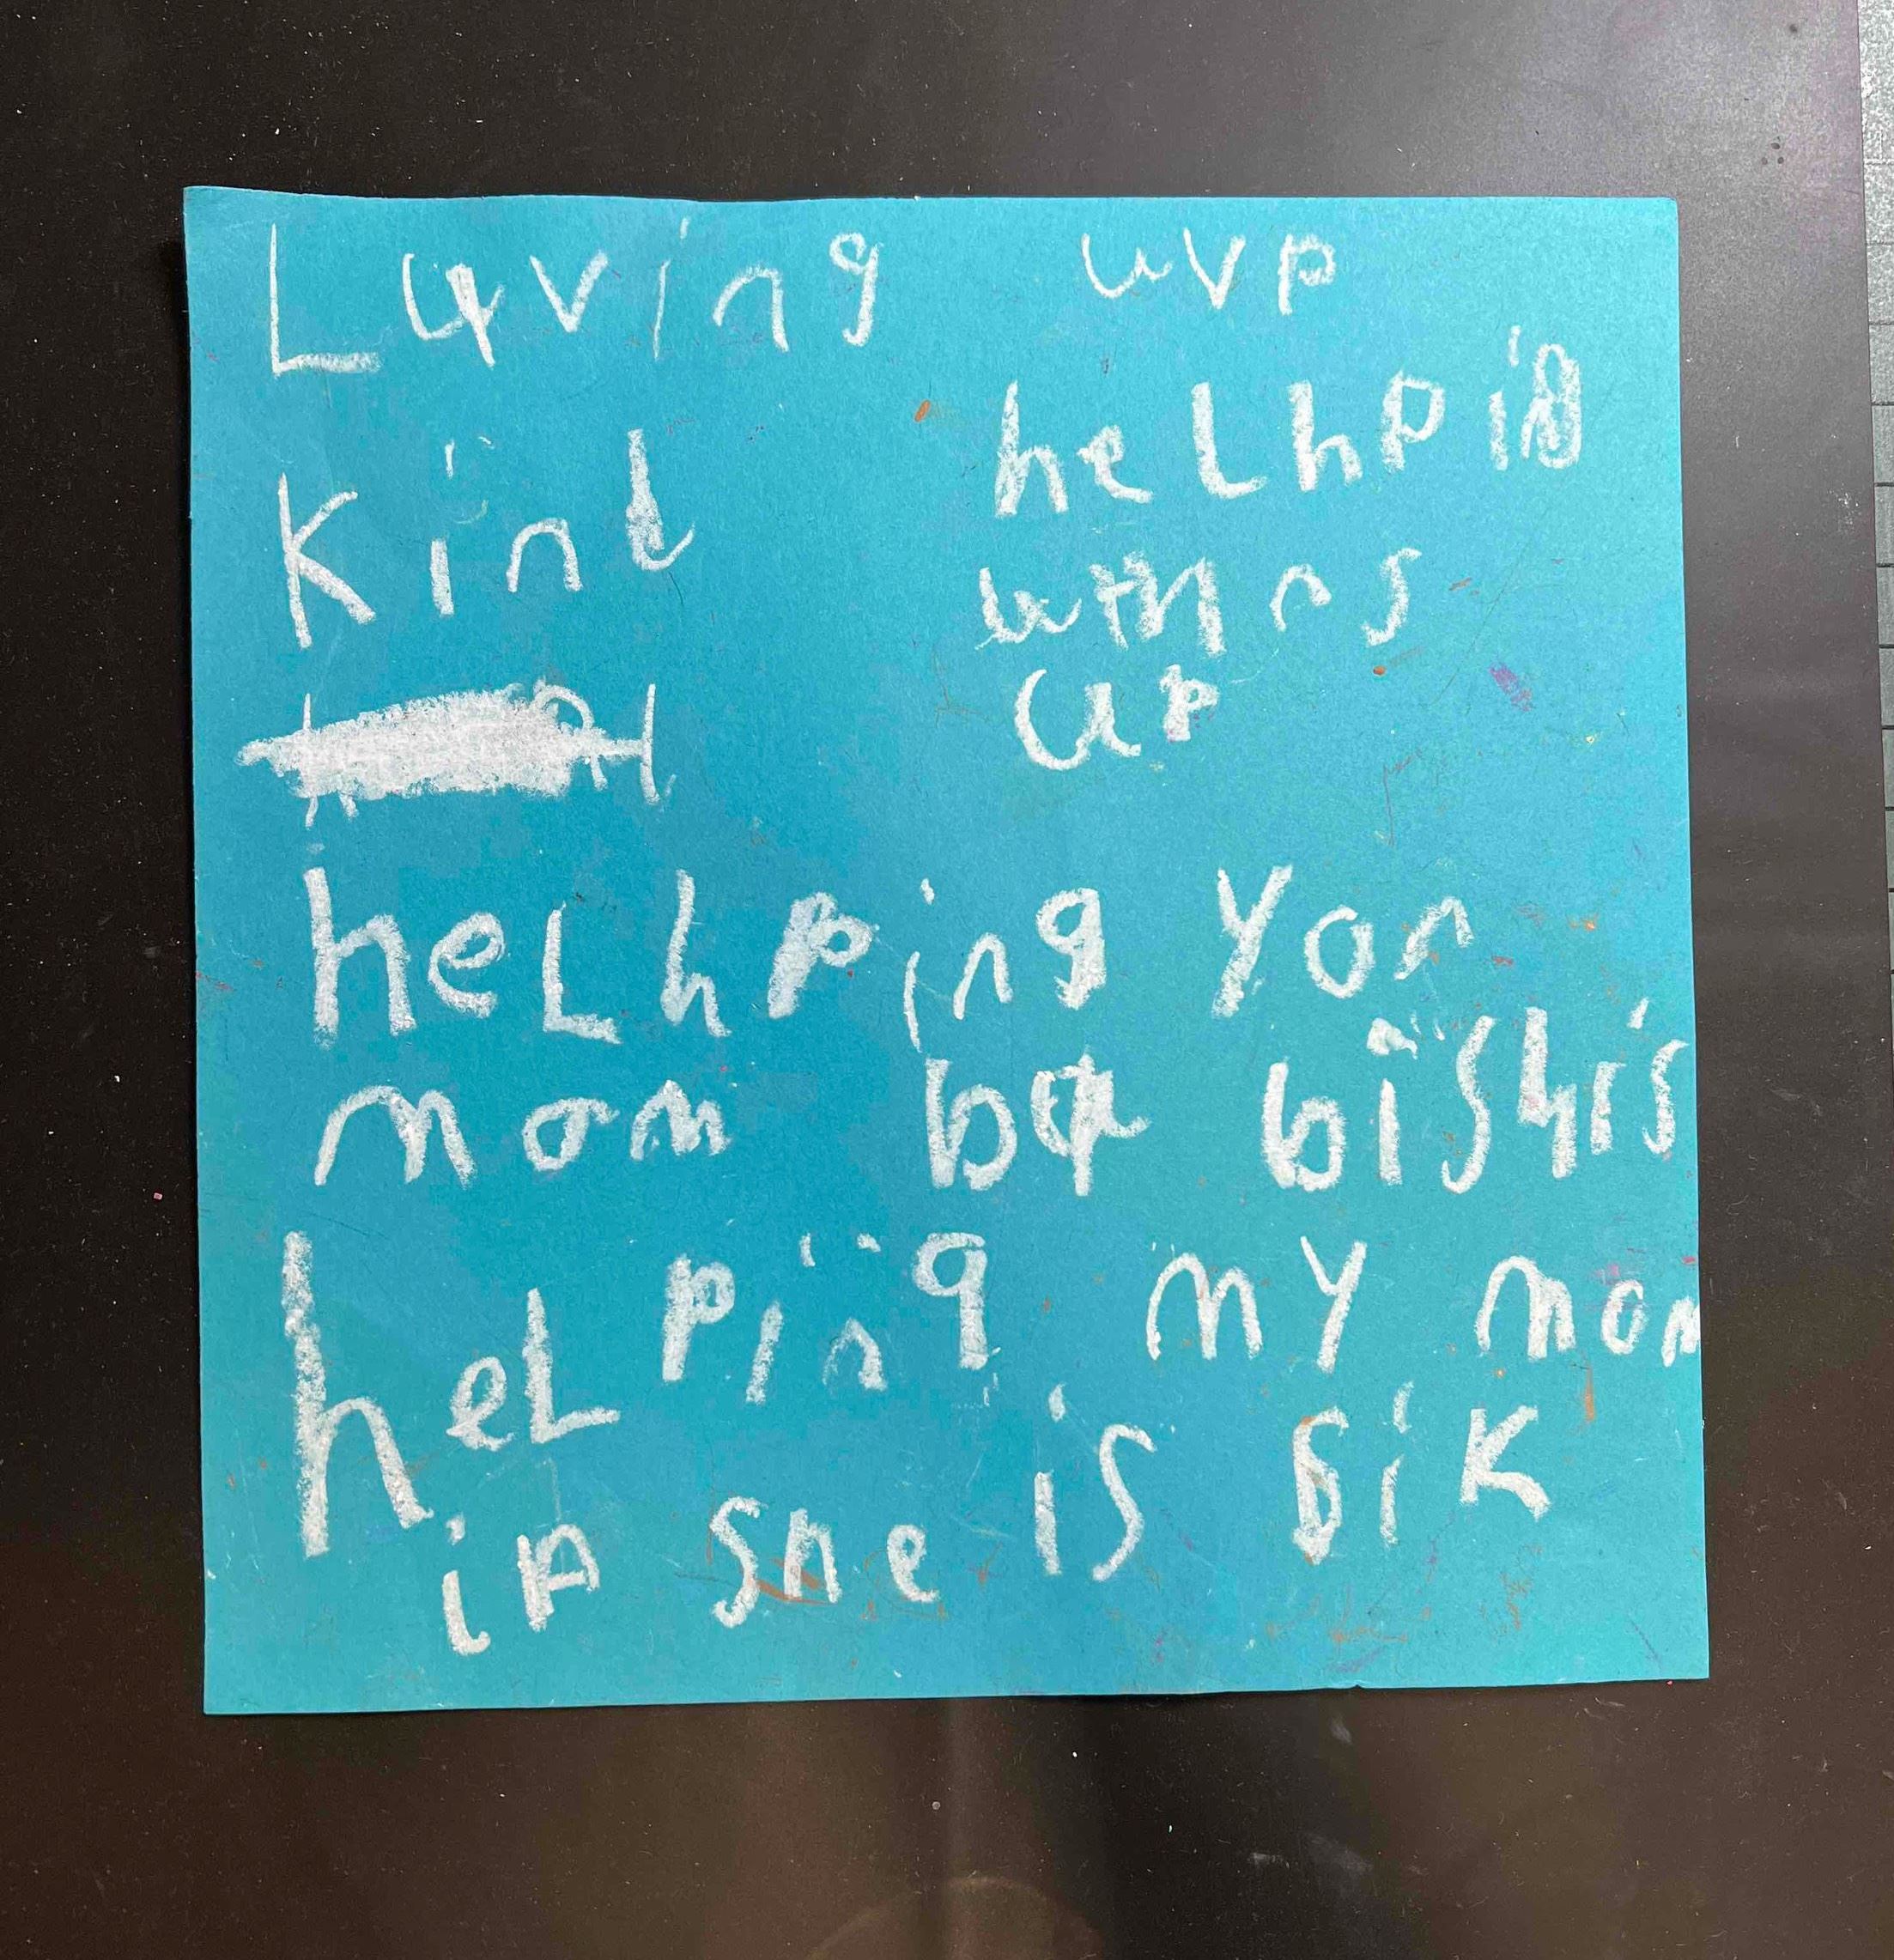 Luving uvp
Kind helhping
up
helhping yor
mom bu bishis
helping my mom
if she is sik